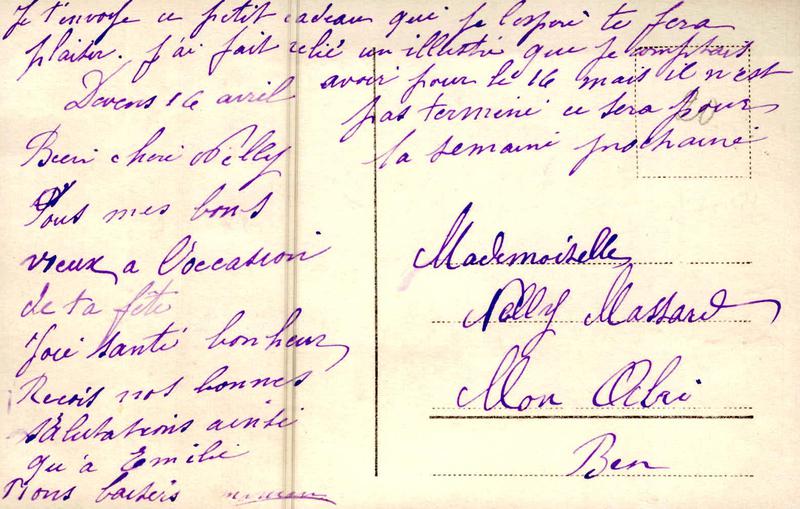 Je t'envoye ce petit cadeau qui je l'esperè te fera
plaisir. J'ai fait relié un illustré que je comptais
avoir pour le 16 mais il n'est
pas termené ce sera pour
la semainè prochainè
Devens 16 avril
Bien cherè Nelly
Tous mes bons
vieux a l'occasion
de ta fête
Joie santé bonheur
Recois nos bonnes
salutations ainsi
qu'a Emilie
Mons baisers
Mademoiselle
Nelly Massard
Mon Abri
Bex